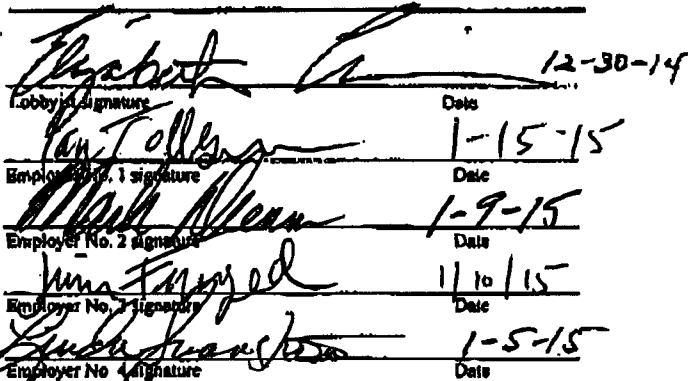 Elizabeth 12-30-14
Lobbyist signature Date
1-15-15
Employer No. 1 signature Date
Mark 1-9-15
Employer No. 2 signature Date
1/10/15
Employer No. 3 signature Date
Linda 1-5-15
Employer No 4 signature Date